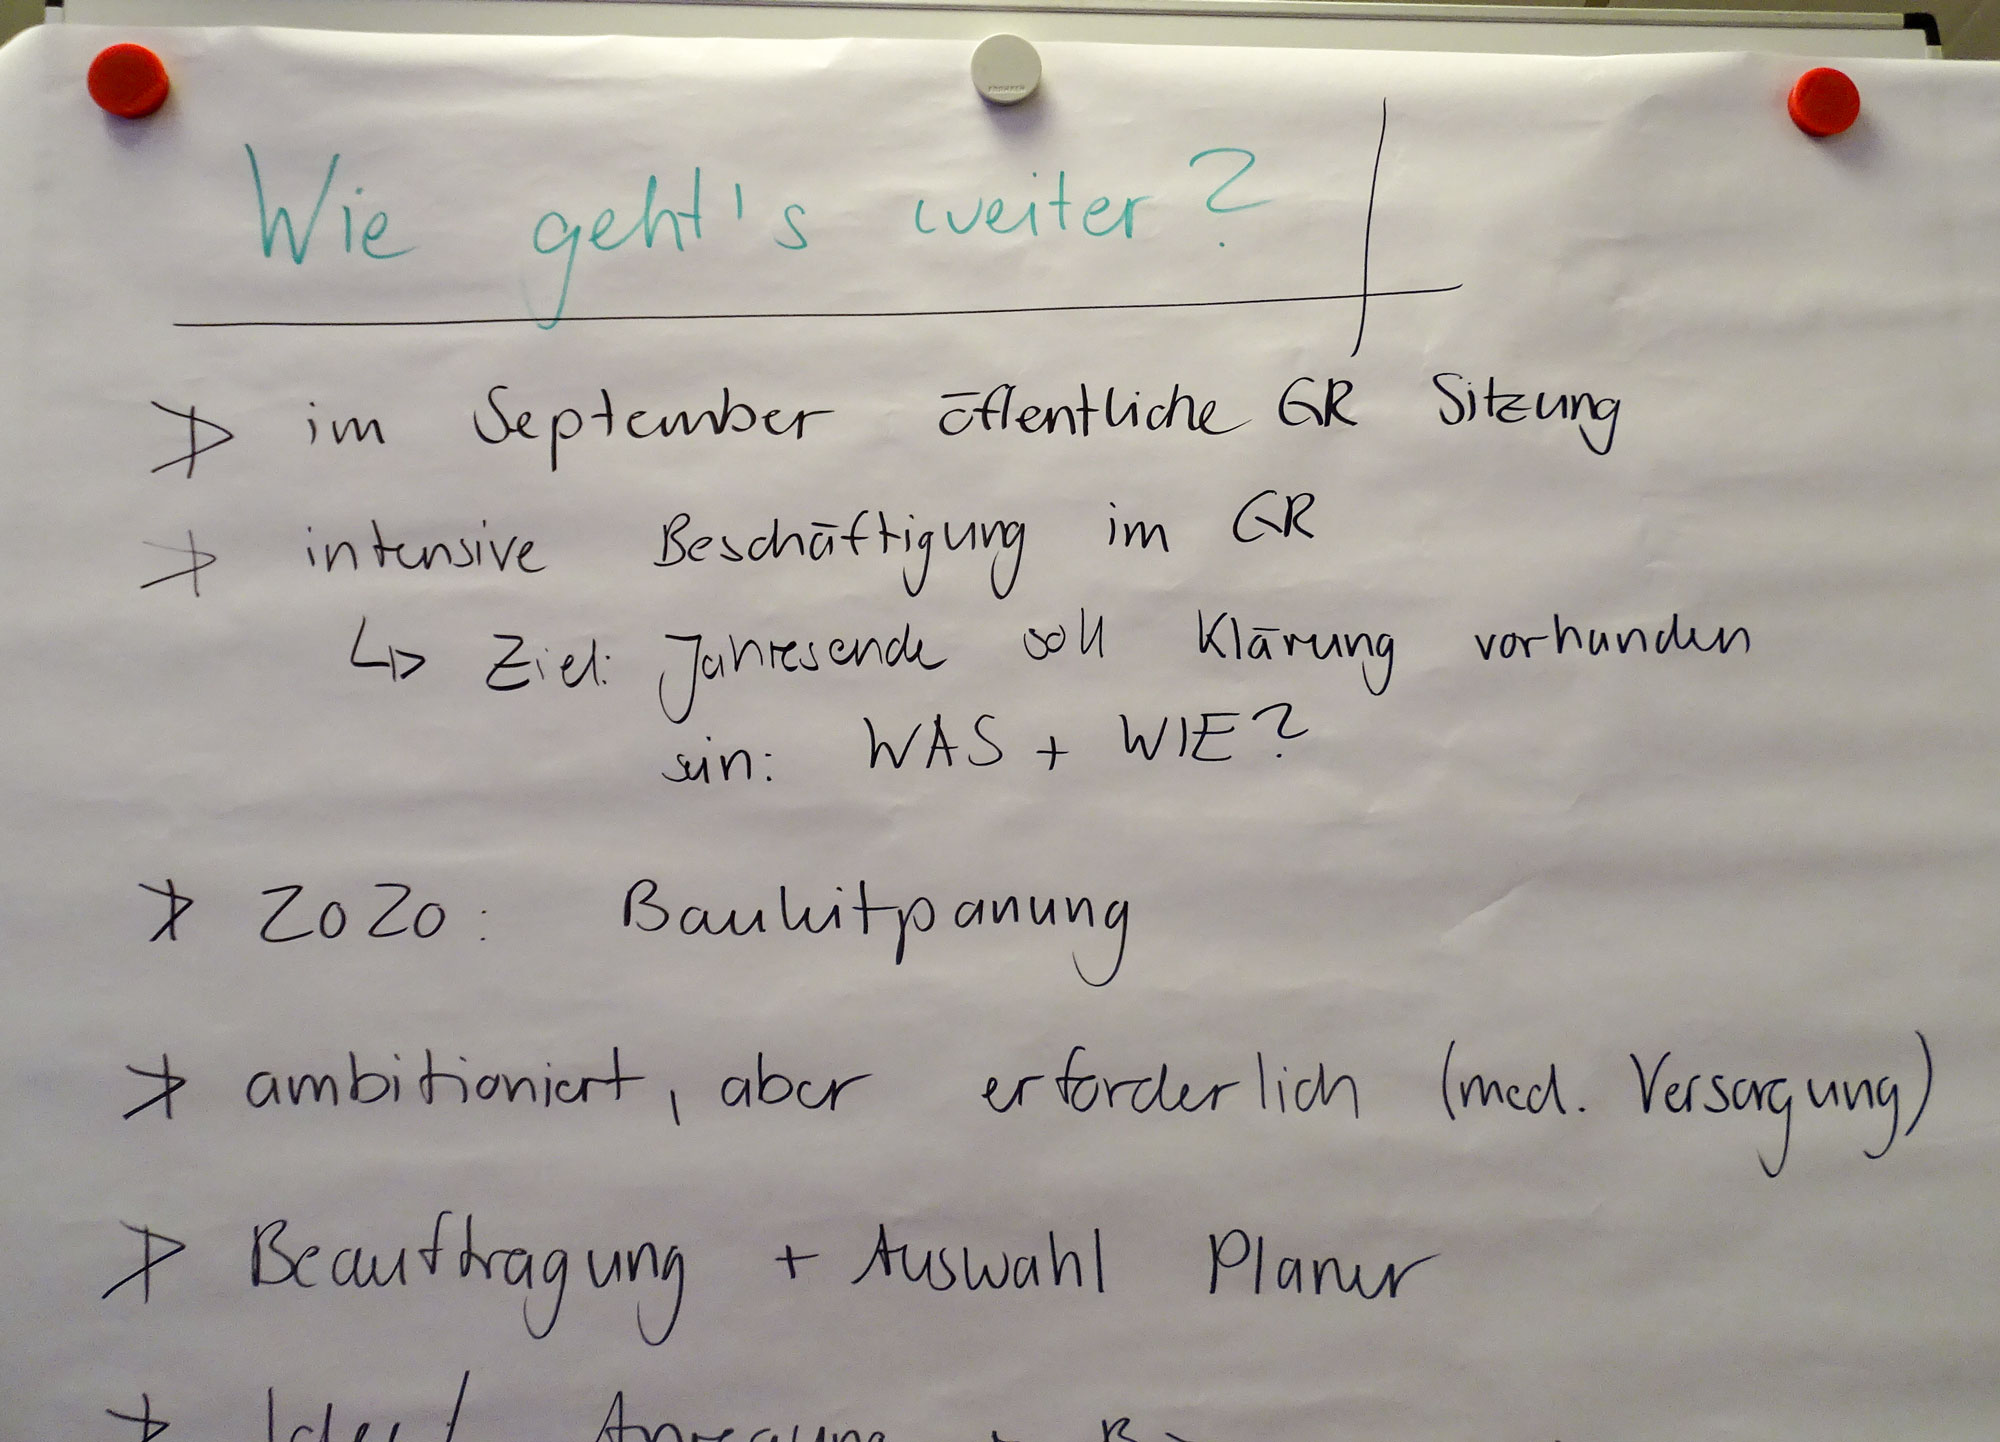 Wie geht's weiter?
im September öffentliche GR Sitzung
intensive Beschäftigung im GR
↳ Ziel: Jahresende soll Klärung vorhanden
sein: WAS + WIE?
2020: Bauleitpanung
ambitioniert, aber erforderlich (med. Versorgung)
Beauftragung + Auswahl Planer
Idee/ Anregung